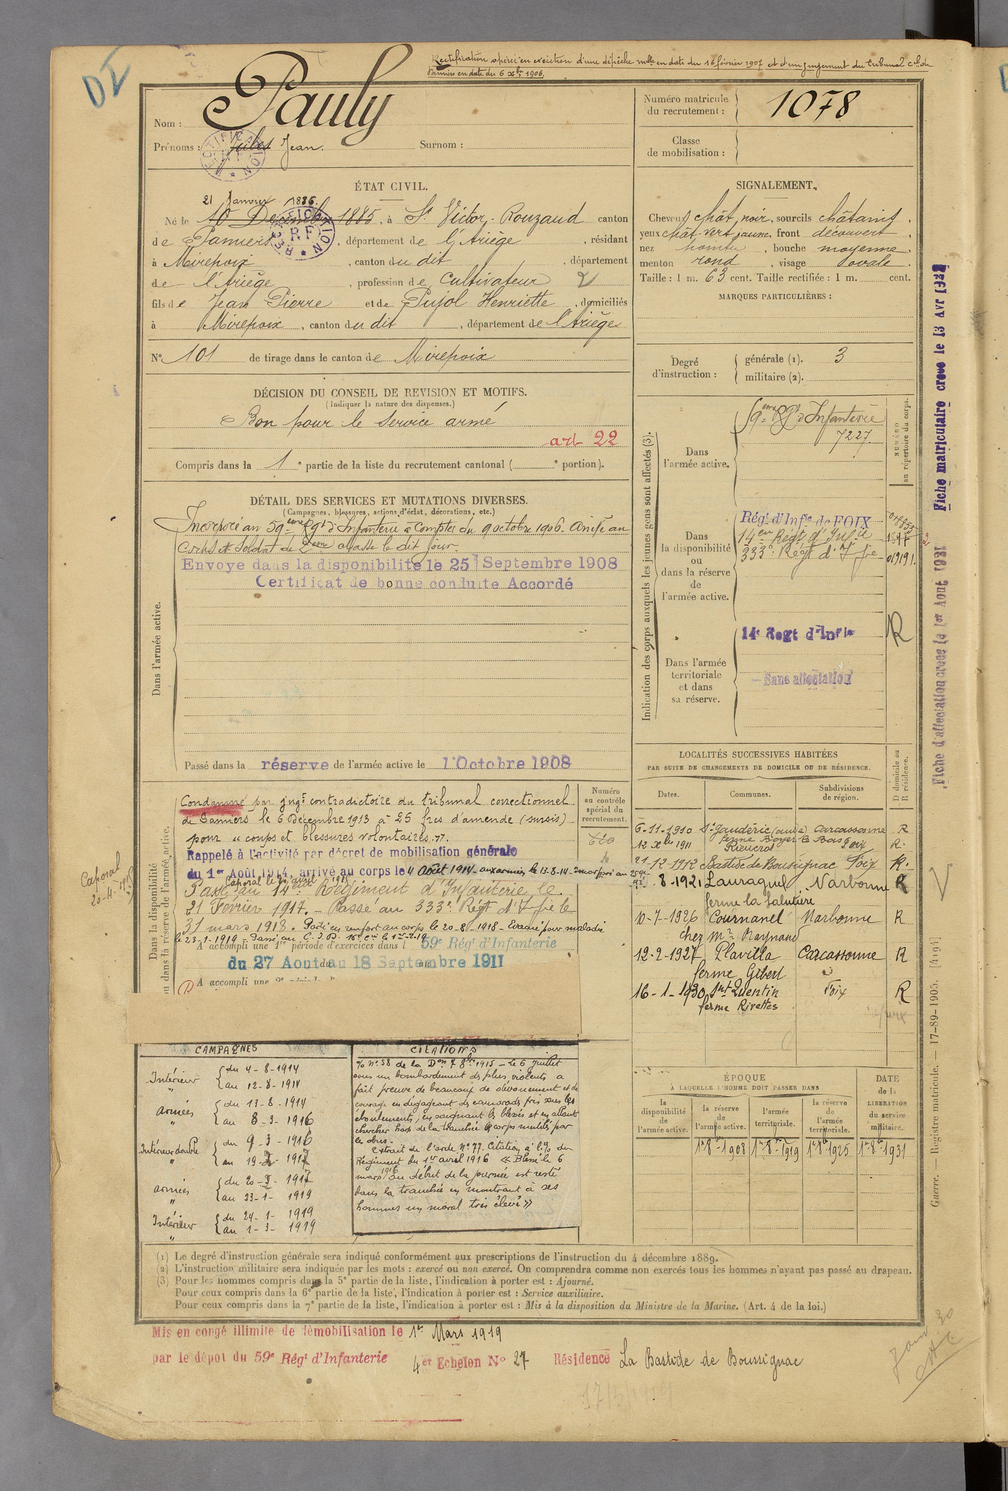 Rectification opérée en exécution d'une dépêche mlle en date du 16 février 1907 et d'un jugement du tribunal civil de
Pamiers en date du 6 Xbre 1906.
DI
Nom : Pauly
Prénoms : Jules Jean. Surnom :
Numéro matricule du recrutement : 1078
Classe de mobilisation :
ÉTAT CIVIL.
21 Janvier 1886
Né le 10 Décemb 1885, à St Victor-Rouzaud canton
de Pamiers, département de l'Ariège, résidant
à Mirepoix, canton du dit, département
de l'Ariège, profession de Cultivateur
fils de Jean Pierre et de Pujol Henriette, domiciliés
à Mirepoix, canton du dit, département de l'Ariège
N° 101 de tirage dans le canton de Mirepoix
SIGNALEMENT.
Cheveux chât. noir, sourcils châtains.
yeux chât. vert jaune, front découvert.
nez, bouche moyenne.
menton rond, visage ovale.
Taille : 1 m. 63 cent. Taille rectifiée : 1 m. cent.
MARQUES PARTICULIÈRES :
Degré d'instruction : générale (1). 3
militaire (2).
DÉCISION DU CONSEIL DE REVISION ET MOTIFS.
(Indiquer la nature des dispenses.)
Bon pour le service armé
art 22
Compris dans la 1e partie de la liste du recrutement cantonal ( e portion).
DÉTAIL DES SERVICES ET MUTATIONS DIVERSES.
(Campagnes, blessures, actions d'éclat, décorations, etc.)
Dans l'armée active.
Incorporé au 59ème Régt d'Infanterie à compter du 9 octobre 1906. Arrivé au
Corps et Soldat de 2ème classe le dit jour.
Envoyé dans la disponibilité le 25 Septembre 1908
Certificat de bonne conduite Accordé
Passé dans la réserve de l'armée active le 1 Octobre 1908
Indication des corps auxquels les jeunes gens sont affectés (3).
NUMÉRO au répertoire du corps.
Dans l'armée active.
59ème Rgt d'Infanterie
7227.
Dans la disponibilité ou dans la réserve de l'armée active.
Régt d'Infie de FOIX
14em Régt d'Infie
333e Régt d'Infie
Dans l'armée territoriale et dans sa réserve.
14e Regt d'Infie
R
Sans affectation
Fiche matriculaire créée le 13 Avr
Fiche d'affectation créée le 1er Aout 1931
Dans la disponibilité ou dans la réserve de l'armée active.
Numéro au contrôle spécial du recrutement.
Condamné par jugt contradictoire du tribunal correctionnel
de Pamiers le 6 Décembre 1913 à 25 frcs d'amende (sursis)
pour coups et blessures volontaires.
Rappelé à l'activité par décret de mobilisation générale
du 1er Août 1914, arrivé au corps le 4 Août 1914. aux armées le 13-8-14.
Passé au 14e Régiment d'Infanterie le
21 Février 1917. - Passé au 333e Régt d'Infie le
31 mars 1918. Parti en renfort au corps le 20-8-1918 - évacué pour maladie
le 23-1-1919
A accompli une 1re période d'exercices dans l 59e Rég' d'Infanterie
du 27 Aout au 18 Septembre 1911
A accompli une
Caporal
LOCALITÉS SUCCESSIVES HABITÉES
PAR SUITE DE CHANGEMENTS DE DOMICILE OU DE RÉSIDENCE.
Dates. Communes. Subdivisions de région. D domicile ou R résidence.
6-11-1910 St Gaudéric (aude) Carcassonne R
21-12-1912 Bastide de Bousignac Foix R.
8-1921 Lauraguel Narbonne R
10-7-1926 Cournanel Narbonne R
chez Mr Raynaud
12-2-1927 Plavilla Carcassonne R
ferme Gibert
16-1-1930 St Quentin Foix R
ferme Rivettes
CAMPAGNES
Intérieur { du 4-8-1914
" au 12-8-1914
Armées { du 13-8-1914
" au 8-3-1916
Intérieur double { du 9-3-1916
" au 19-2-1917
Armées { du 20-2-1917
" au 23-1-1919
Intérieur { du 24-1-1919
" au 1-3-1919
CITATIONS
le 6 juillet
sous un bombardement des plus violents a
fait preuve de beaucoup de dévouement et de
courage en dégageant des camarades pris sous les
éboulements, en soignant les blessés et en allant
chercher hors de la tranchée le corps mutilé par
les obus.
Extrait de l'ordre N° 77. Citation à l'O/ du
Régiment du 1er avril 1916 « Blessé le 6
mars 1916 au début de la journée est resté
dans la tranchée en montrant à ses
hommes un moral très élevé »
ÉPOQUE
À LAQUELLE L'HOMME DOIT PASSER DANS
la disponibilité de l'armée active. la réserve de l'armée active. l'armée territoriale. la réserve de l'armée territoriale. DATE de la LIBÉRATION du service militaire.
1er 8bre 1908 1er 8bre 1919 1er 8bre 1925 1er 8bre 1931
Guerre. — Registre matricule. — 17-89-1905. [4494]
(1) Le degré d'instruction générale sera indiqué conformément aux prescriptions de l'instruction du 4 décembre 1889.
(2) L'instruction militaire sera indiquée par les mots : exercé ou non exercé. On comprendra comme non exercés tous les hommes n'ayant pas passé au drapeau.
(3) Pour les hommes compris dans la 5e partie de la liste, l'indication à porter est : Ajourné.
Pour ceux compris dans la 6e partie de la liste, l'indication à porter est : Service auxiliaire.
Pour ceux compris dans la 7e partie de la liste, l'indication à porter est : Mis à la disposition du Ministre de la Marine. (Art. 4 de la loi.)
Mis en congé illimité de démobilisation le 1er Mars 1919
par le dépôt du 59e Régt d'Infanterie 4em Echelon N° 27 Résidence La Bastide de Boussignac